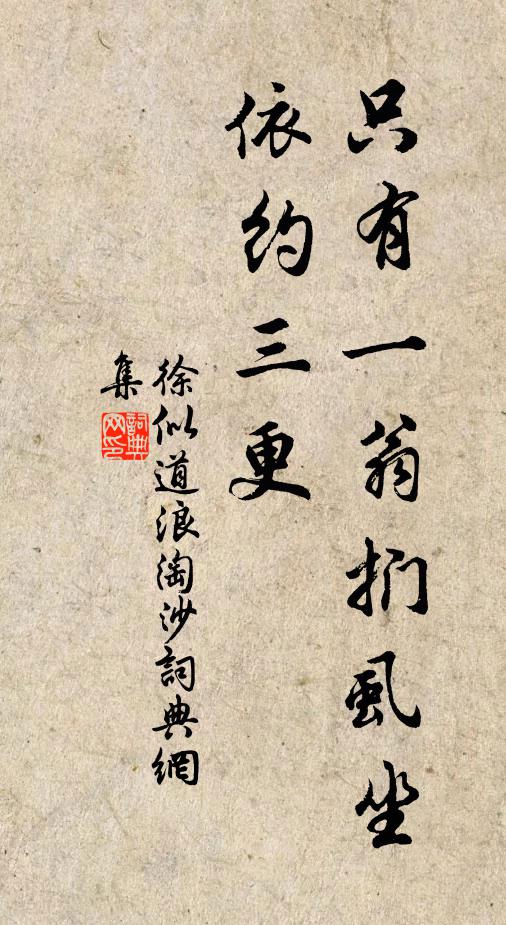 只有一翁捫虱坐
依約三更
徐似道浪淘沙詞典網
集
詞典
网印